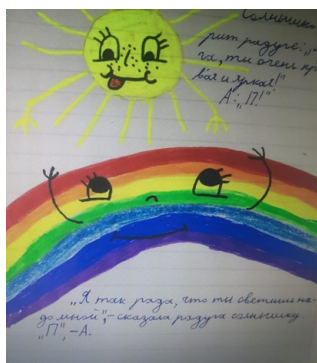 Солнышко
рит радуге: „
га, ты очень кра
вая и яркая!"
А: „П!"
„Я так рада, что ты светишь на-
до мной", – сказала радуга солнышку.
„П", – А.